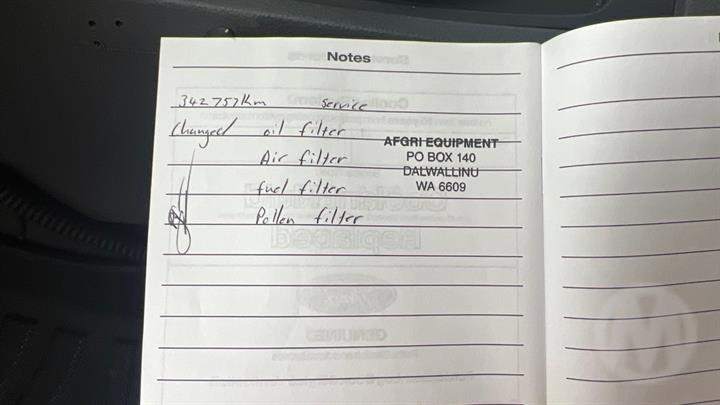 Notes
342757Km service
Changed oil filter
Air filter
fuel filter
Pollen filter
AFGRI EQUIPMENT
PO BOX 140
DALWALLINU
WA 6609